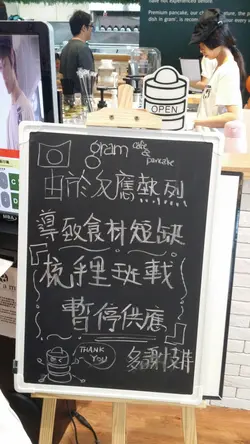 Premium pancake, our
dish in gram',
OPEN
gram cafe & pancake
由於反應熱烈
導致食材短缺
梳乎厘班戟
暫停供應
THANK YOU
多謝支持